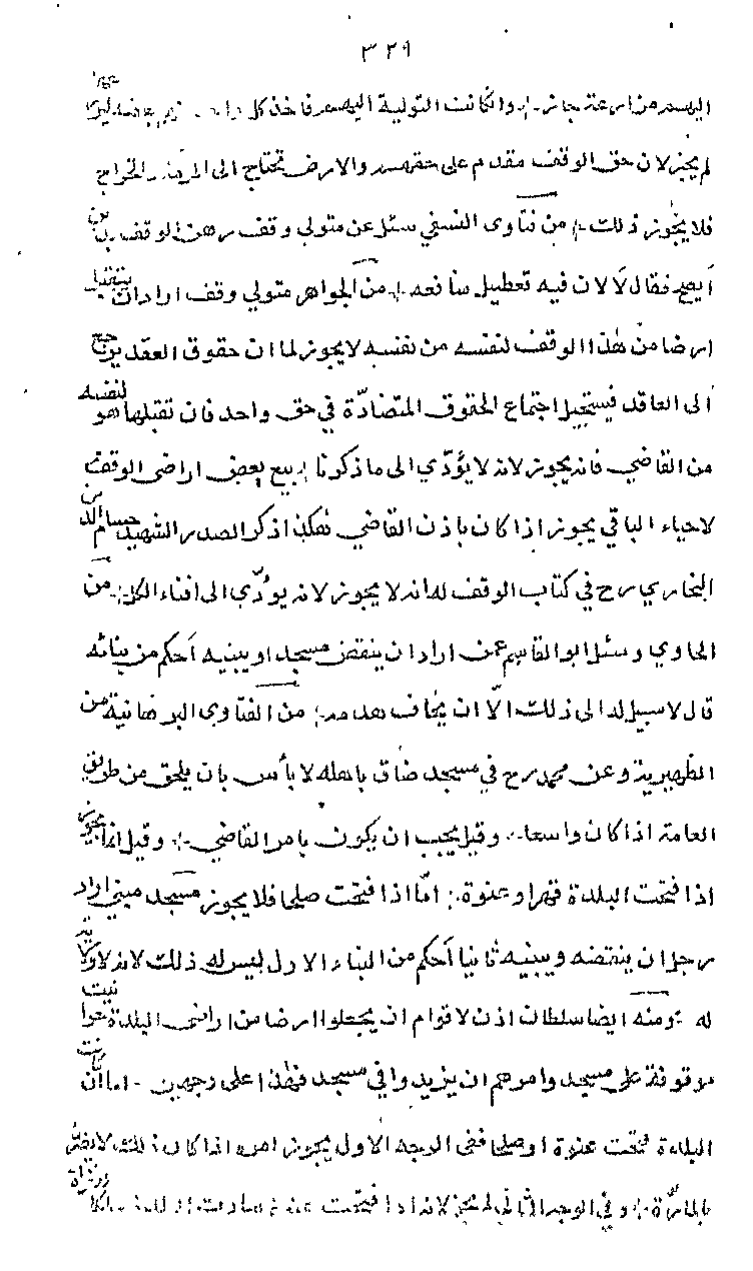 ٣٢٩
اليهم من المزارعة جائز وان كانت التولية اليهم فاخذ كل
لم يجز لان حق الوقف مقدم على حقهم والارض تحتاج الى والخراج
فلا يجوز ذلك من فتاوى النسفي سئل عن متولي وقف رهن الوقف
أيصح فقال لا لان فيه تعطيل منافعه من الجواهر متولي وقف اراد ان يتقبل
ارضا من هذا الوقف لنفسه من نفسه لا يجوز لما ان حقوق العقد يرجع
الى العاقد فيستحيل اجتماع الحقوق المتضادّة في حق واحد فان تقبلها هو لنفسه
من القاضي فانه يجوز لانه لا يؤدّي الى ما ذكرنا بيع بعض اراضى الوقف
لاحياء الباقي يجوز اذا كان باذن القاضي هكذا ذكر الصدر الشهيد حسام الد
البخاري رح في كتاب الوقف له انه لا يجوز لانه يؤدّي الى افناء الكل من
الحاوي وسئل ابو القاسم عمن اراد ان ينقض مسجد او يبنيه أحكم من بنائه
قال لا سبيل له الى ذلك الّا ان يخاف هدمه من الفتاوى البرهانية من
الظهيرية وعن محمد رح في مسجد ضاق باهله لا بأس بان يلحق من طريق
العامة اذا كان واسعا وقيل يجب ان يكون بامر القاضي وقيل انما يجوز
اذا فتحت البلدة قهرا وعنوة امّا اذا فتحت صلحا فلا يجوز مسجد مبني اراد
رجل ان ينقضه ويبنيه ثانيا أحكم من البناء الاول ليس له ذلك لانه لا ولاية
له ومنه ايضا سلطان اذن لاقوام ان يجعلوا ارضا من اراضى البلدة حوانيت
موقوفة على مسجد وامرهم ان يزيدوا في مسجد فهذا على وجهين اما ان كانت
البلدة فتحت عنوة او صلحا ففى الوجه الاول يجوز امره اذا كان ذلك لا يضر
بالمارّة وفي الوجه الثاني لم يجز لانه اذا فتحت عنوة صارت